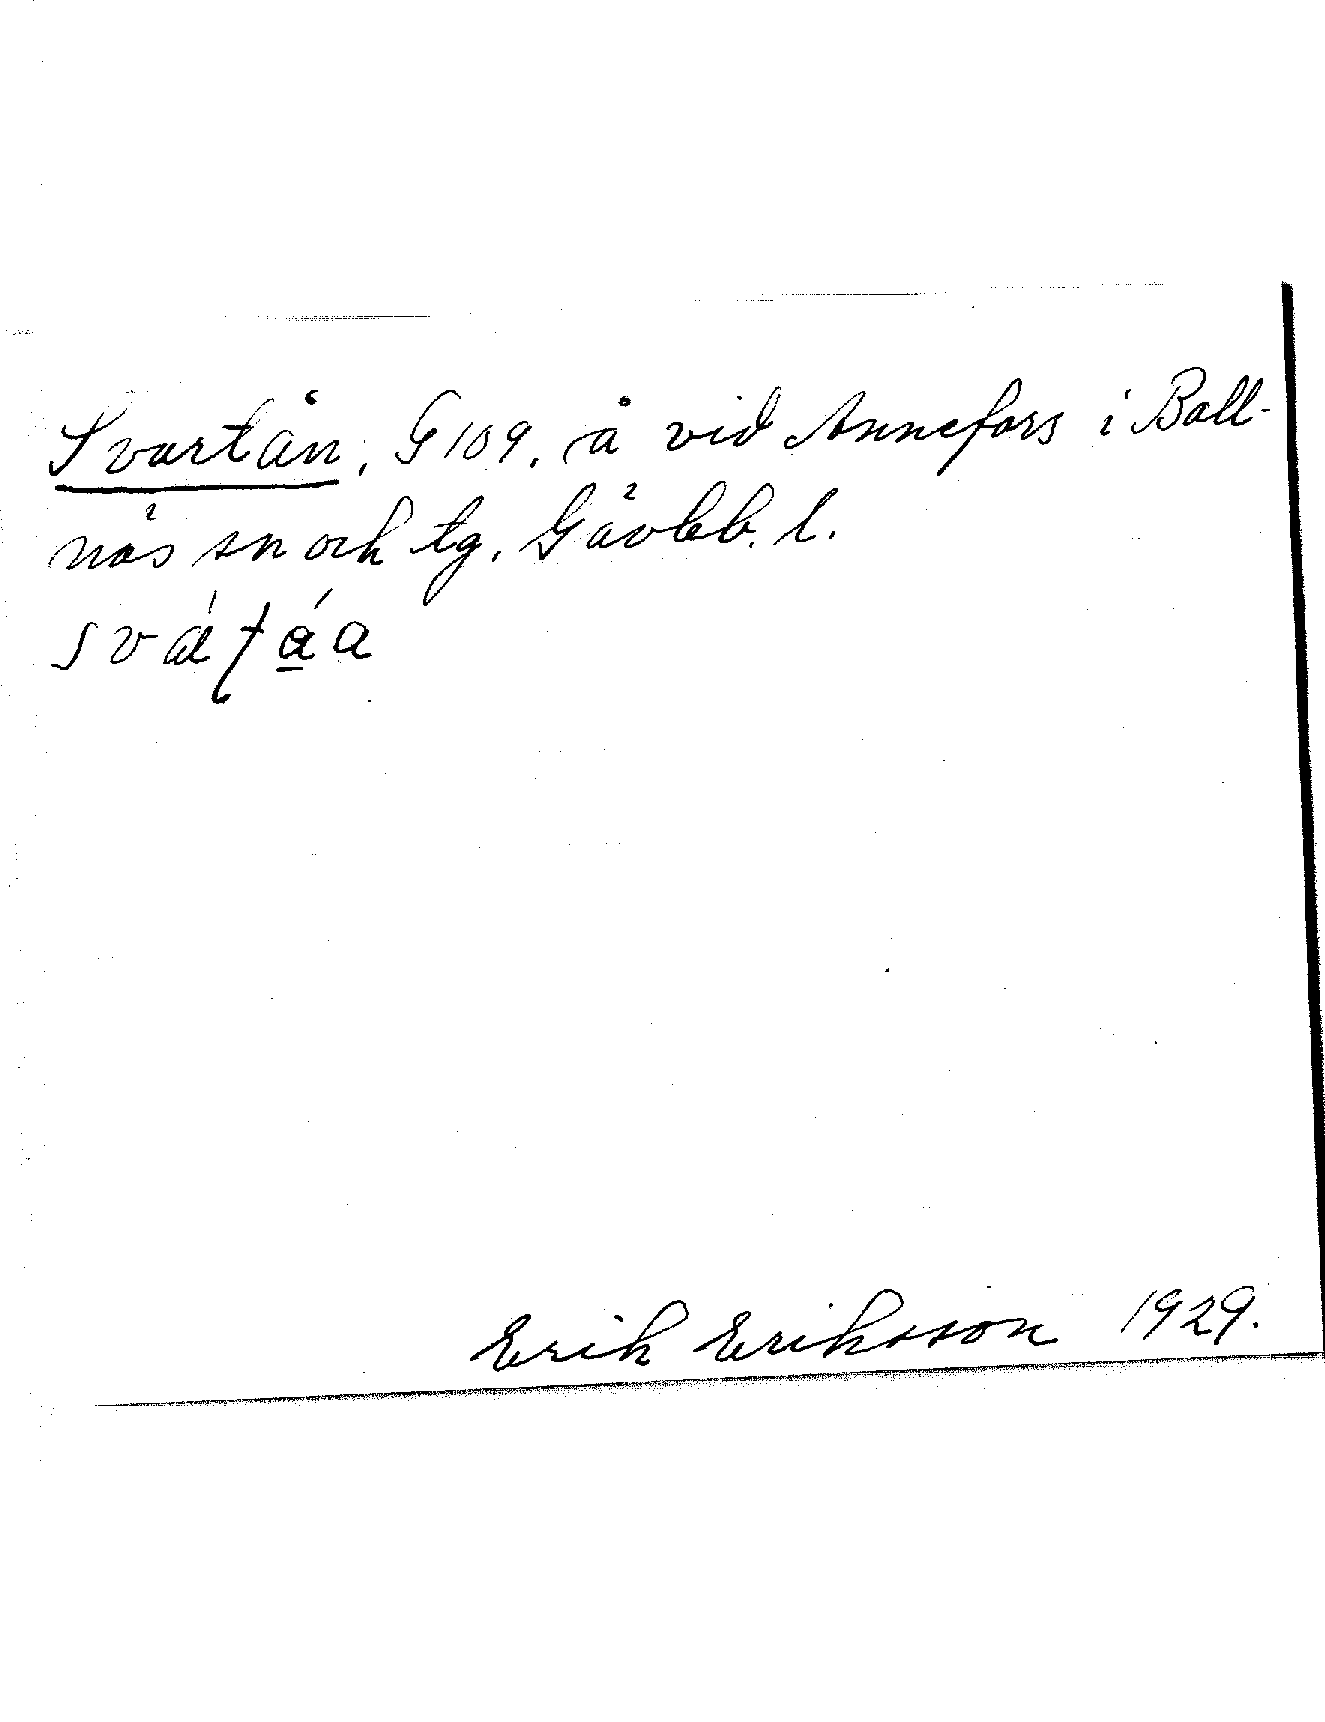 Svartån, G 109, å vid Annefors i Boll-
näs sn och tg, Gävleb. l.
Erik Eriksson 1929.